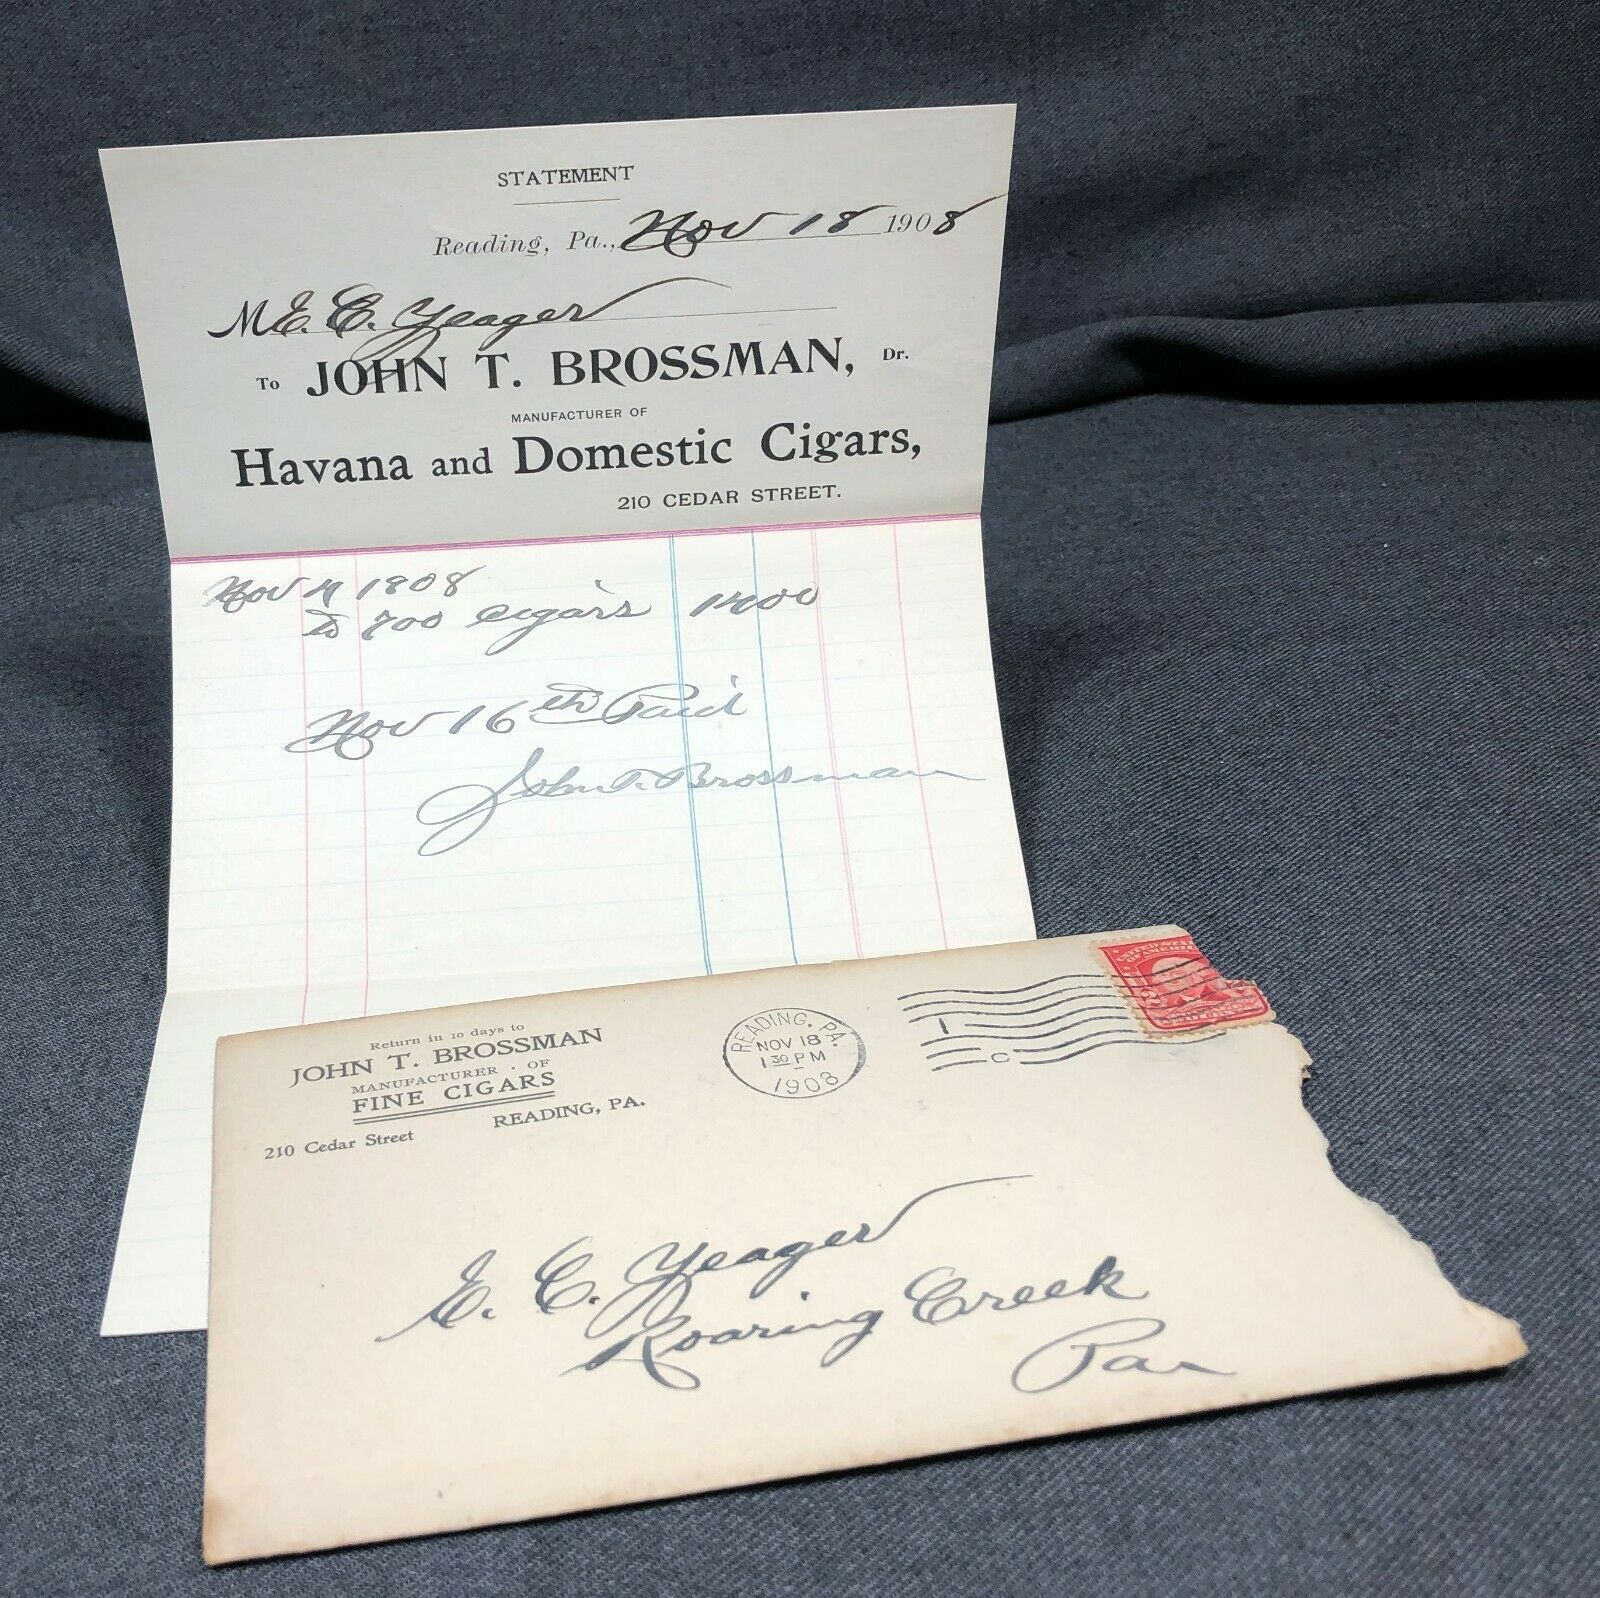 STATEMENT
Reading, Pa., Nov 18 1908
M E. C. Yeager
To JOHN T. BROSSMAN, Dr.
MANUFACTURER OF
Havana and Domestic Cigars,
210 CEDAR STREET.
Nov 4 1908
To 700 cigars 1400
Nov 16th Paid
John T. Brossman
UNITED STATES
OF AMERICA
Return in 10 days to
JOHN T. BROSSMAN
MANUFACTURER . OF
FINE CIGARS
READING, PA.
210 Cedar Street
READING, PA.
NOV 18
1 30 PM
1908
1
C
E. C. Yeager
Roaring Creek
Pa